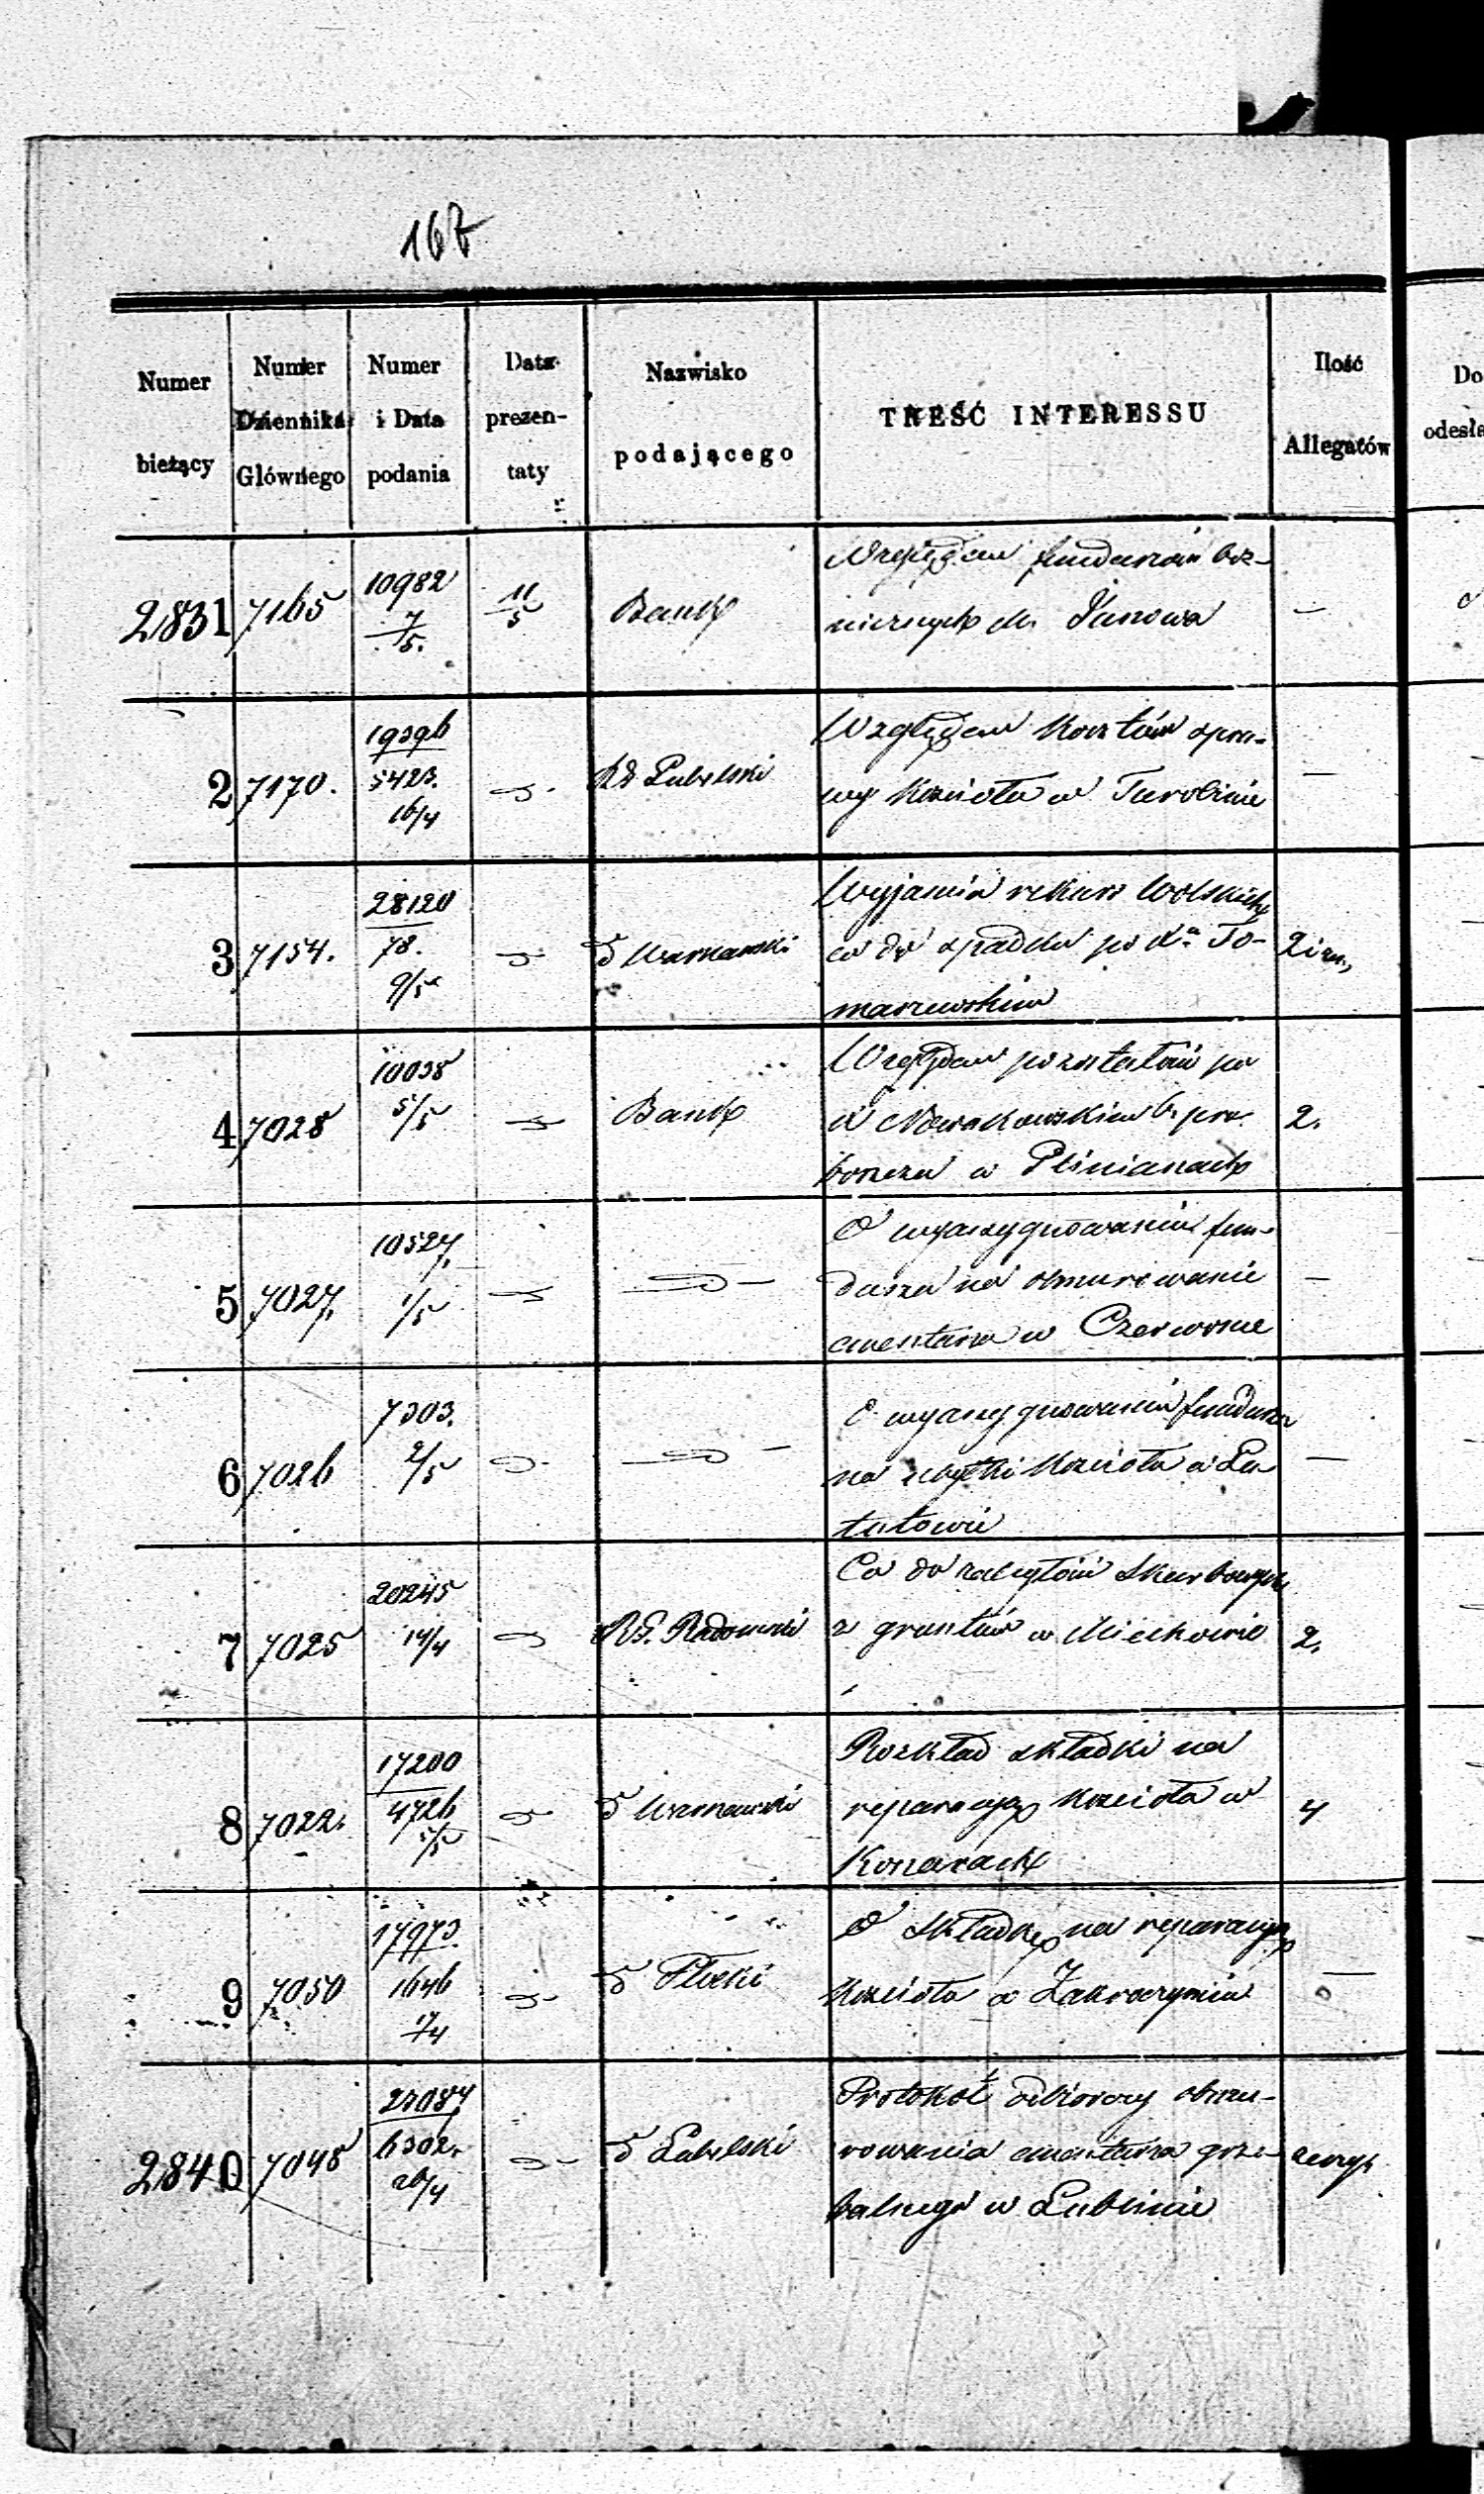 167
Numer bieżący
Numer Dziennika Głównego
Numer i Data podania
Data prezen- taty
Nazwisko podającego
TREŚĆ INTERESSU
Ilość Allegatów
Do
odesła
2831 7165 10982 7/5. 11/5 Bank
Względem funduszów boż-
niczych m. Janowa —
2 7170. 19396 5423. 16/4 Rd Lubelski
Względem kosztów opra-
wy Kościoła w Turobinie —
3 7154. 28120 78. 9/5 Warszawski
Wyjaśnia rekurs Wolskich
co do spadku po Xu To-
maszewskim 2
4 7028 10038 5/5 Bank
Względem pozostałości po
X Nowakowskim b. pro-
boszczu w 2.
5 7027. 10527. 1/5
O wyasygnowanie fun-
duszu na obmurowanie
cmentarza w Czerwonce —
6 7026 7303. 2/5
O wyasygnowanie funduszu
na Kościoła w Lu-
tutowie —
7 7025 20245 14/4 Rd. Radomski
Co do skarbowych
z gruntów w Miechowie 2.
8 7022. 17200 4726 5/5 Warszawski
Rozkład składki na
reparacyę Kościoła w
Konarach 4
9 7050 17973. 1646 17/4 Płocki
O składkę na reparacyę
Kościoła w Zakroczymiu —
2840 7048 23087 6302. 26/4 Lubelski
Protokół odbiorczy obmu-
rowania cmentarza grze-
balnego w Lublinie zeszyt